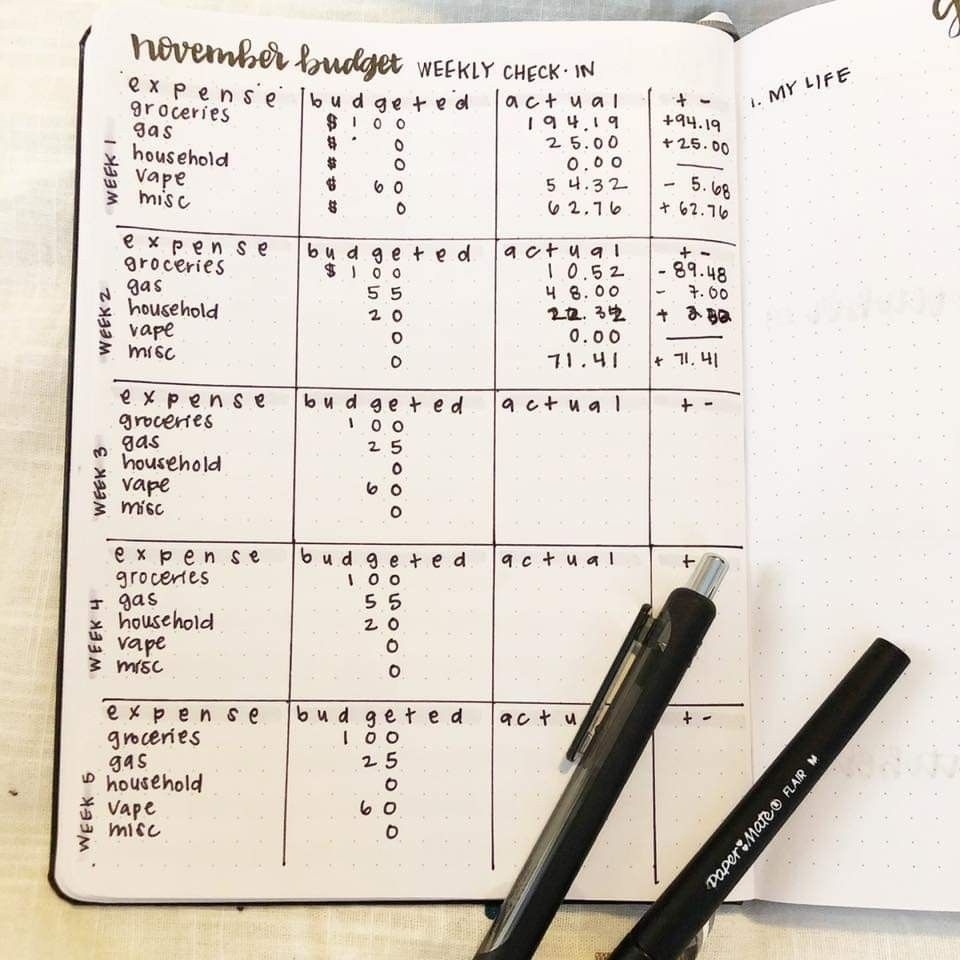 november budget WEEKLY CHECK-IN
WEEK 1
expense budgeted actual + -
groceries $100 194.19 +94.19
gas $ 0 25.00 +25.00
household $ 0 0.00 —
vape $ 60 54.32 - 5.68
misc $ 0 62.76 + 62.76
WEEK 2
expense budgeted actual + -
groceries $100 10.52 - 89.48
gas 55 48.00 - 7.00
household 20 +
vape 0 0.00 —
misc 0 71.41 + 71.41
WEEK 3
expense budgeted actual + -
groceries 100
gas 25
household 0
vape 60
misc 0
WEEK 4
expense budgeted actual +
groceries 100
gas 55
household 20
vape 0
misc 0
WEEK 5
expense budgeted actu + -
groceries 100
gas 25
household 0
vape 60
misc 0
1. MY LIFE
Paper Mate® FLAIR M